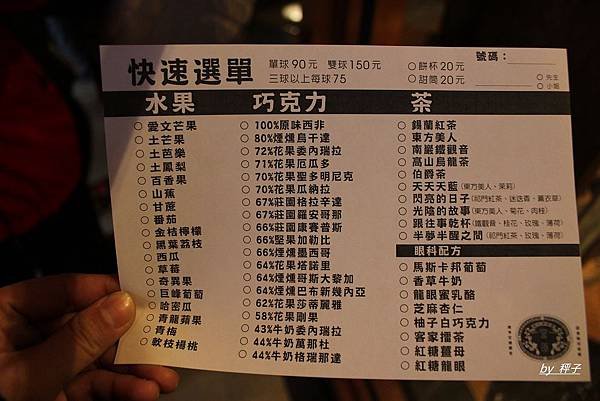 快速選單
單球90元 雙球150元
三球以上每球75
○餅杯20元
○甜筒20元
號碼：
○先生
○小姐
水果
○愛文芒果
○土芒果
○土芭樂
○土鳳梨
○百香果
○山蕉
○甘蔗
○番茄
○金桔檸檬
○黑葉荔枝
○西瓜
○草莓
○奇異果
○巨峰葡萄
○哈密瓜
○青龍蘋果
○青梅
○軟枝楊桃
巧克力
○100%原味西非
○80%煙燻烏干達
○72%花果委內瑞拉
○71%花果厄瓜多
○70%花果聖多明尼克
○70%花果瓜納拉
○67%莊園格拉辛達
○67%莊園羅安哥那
○66%莊園康賽普斯
○66%堅果加勒比
○66%煙燻墨西哥
○64%花果塔諾里
○64%煙燻哥斯大黎加
○64%煙燻巴布新幾內亞
○62%花果莎蒂麗雅
○58%花果剛果
○43%牛奶委內瑞拉
○44%牛奶萬那杜
○44%牛奶格瑞那達
茶
○錫蘭紅茶
○東方美人
○南巖鐵觀音
○高山烏龍茶
○伯爵茶
○天天天藍(東方美人、茉莉)
○閃亮的日子(祁門紅茶、迷迭香、薰衣草)
○光陰的故事(東方美人、菊花、肉桂)
○跟往事乾杯(鐵觀音、桂花、玫瑰、薄荷)
○半夢半醒之間(祁門紅茶、玫瑰、薄荷)
眼科配方
○馬斯卡邦葡萄
○香草牛奶
○龍眼蜜乳酪
○芝麻杏仁
○柚子白巧克力
○客家擂茶
○紅糖薑母
○紅糖龍眼
by 秤子